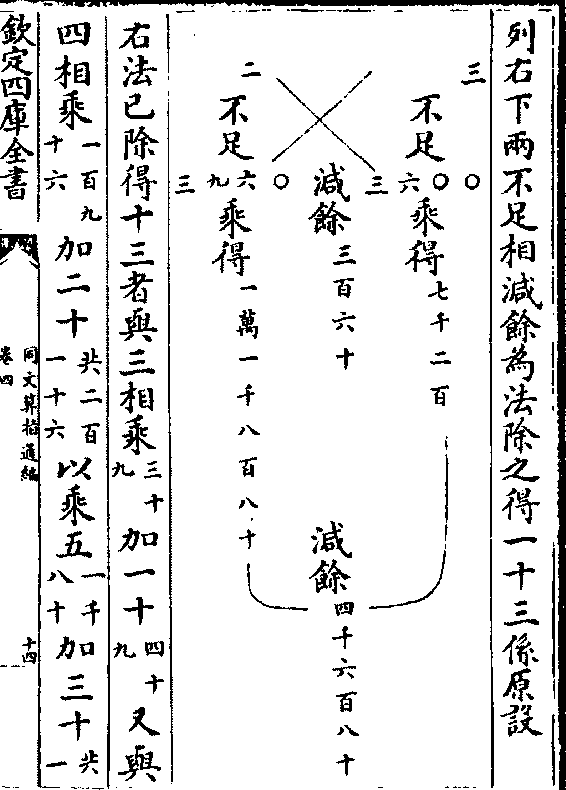 列右下兩不足相減餘為法除之得一十三係原設
三
不足三六〇〇乘得七千二百
減餘三百六十
減餘四千六百八十
二
不足三九六〇乘得一萬一千八百八十
右法已除得十三者與三相乘三十九加一十四十九又與
四相乘一百九十六加二十共二百一十六以乘五一千八十加三十共一
欽定四庫全書
同文算指通編
卷四
十四